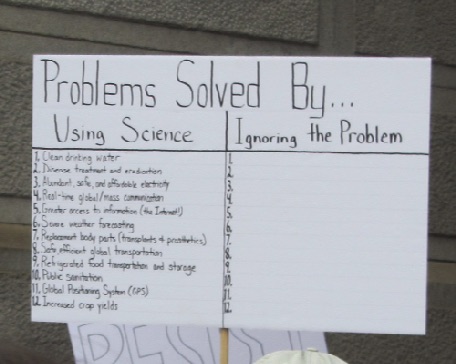 Problems Solved By...
Using Science
1. Clean drinking water
2. Disease treatment and eradication
3. Abundant, safe, and affordable electricity
4. Real-time global/mass communication
5. Greater access to information (the Internet!)
6. Severe weather forecasting
7. Replacement body parts (transplants & prosthetics)
8. Safe, efficient global transportation
9. Refrigerated food transportation and storage
10. Public sanitation
11. Global Positioning System (GPS)
12. Increased crop yields
Ignoring the Problem
1.
2.
3.
4.
5.
6.
7.
8.
9.
10.
11.
12.
RESIST